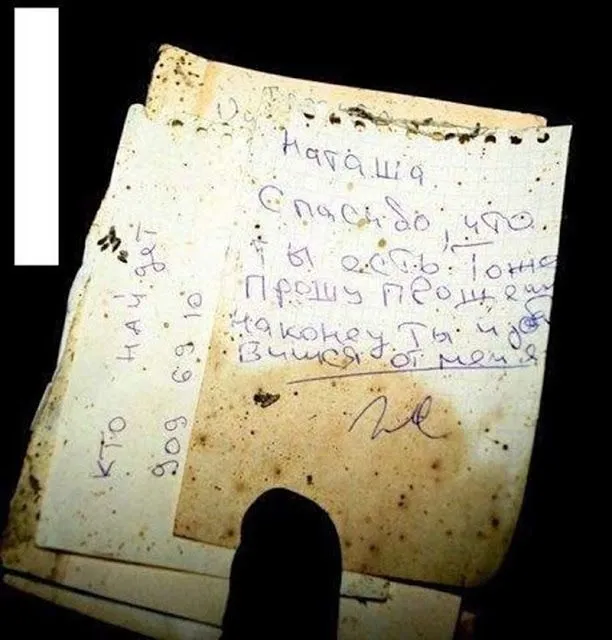 Наташа
Спасибо, что
ты есть. Тоже
Прошу прощени
наконец ты
вишся от меня
кто найдет